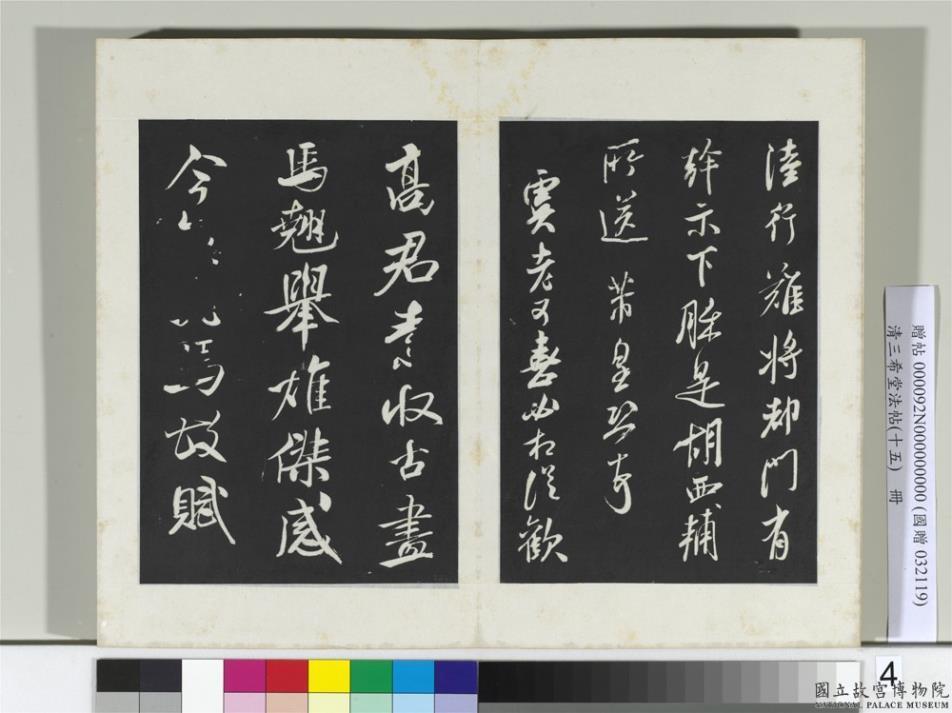 陸行難將却門有
幹示下賒是胡西輔
所送 芾皇恐奇
賓老可喜必相從歡
高君素收古畫
馬翹舉雄傑感
今
筆故賦
贈帖 000092N000000000 (國贈 032119)
清三希堂法帖(十五) 冊
4
國立故宮博物院
NATIONAL PALACE MUSEUM